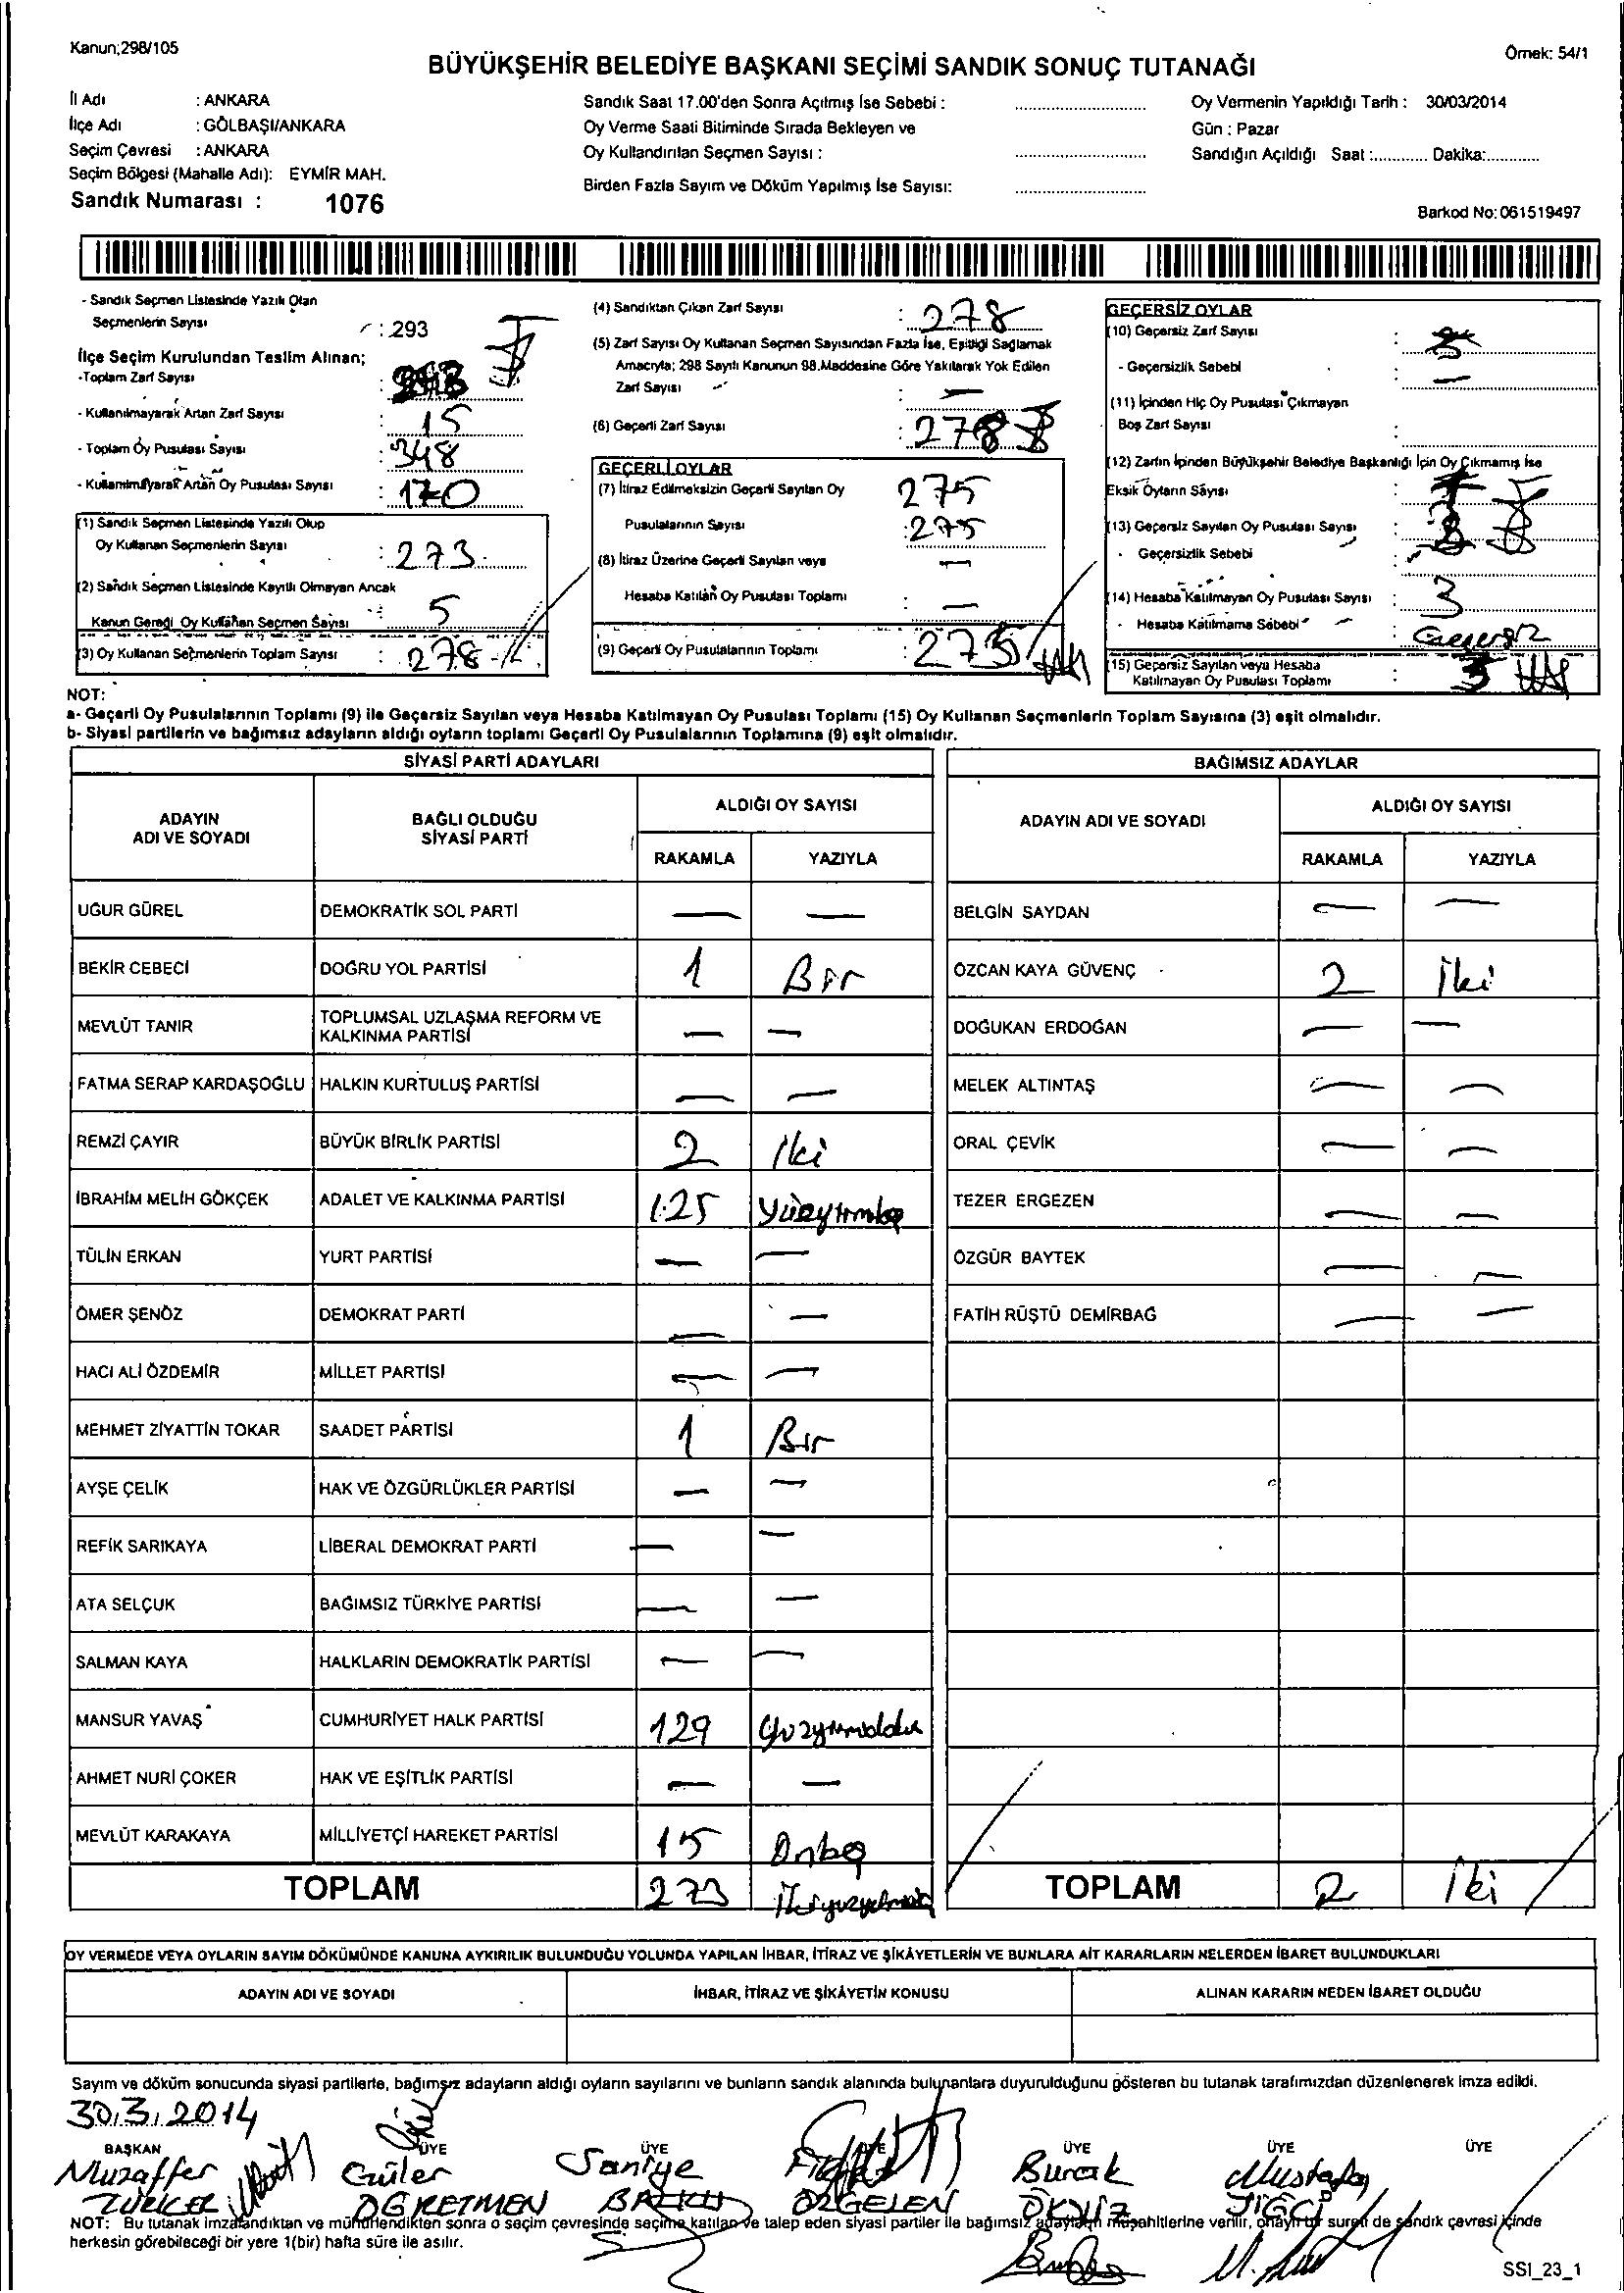 Kanun;298/105
Örnek: 54/1
BÜYÜKŞEHİR BELEDİYE BAŞKANI SEÇİMİ SANDIK SONUÇ TUTANAĞI
İl Adı : ANKARA
İlçe Adı : GÖLBAŞI/ANKARA
Seçim Çevresi : ANKARA
Seçim Bölgesi (Mahalle Adı): EYMİR MAH.
Sandık Numarası : 1076
Sandık Saat 17.00'den Sonra Açılmış İse Sebebi :
Oy Verme Saati Bitiminde Sırada Bekleyen ve
Oy Kullandırılan Seçmen Sayısı :
Birden Fazla Sayım ve Döküm Yapılmış İse Sayısı:
Oy Vermenin Yapıldığı Tarih : 30/03/2014
Gün : Pazar
Sandığın Açıldığı Saat :............ Dakika:............
Barkod No: 061519497
- Sandık Seçmen Listesinde Yazılı Olan
Seçmenlerin Sayısı : 293
İlçe Seçim Kurulundan Teslim Alınan;
-Toplam Zarf Sayısı :
- Kullanılmayarak Artan Zarf Sayısı : 15
- Toplam Oy Pusulası Sayısı : 348
- Kullanılmayarak Artan Oy Pusulası Sayısı : 170
(1) Sandık Seçmen Listesinde Yazılı Olup
Oy Kullanan Seçmenlerin Sayısı : 273
(2) Sandık Seçmen Listesinde Kayıtlı Olmayan Ancak
Kanun Gereği Oy Kullanan Seçmen Sayısı : 5
(3) Oy Kullanan Seçmenlerin Toplam Sayısı : 278
(4) Sandıktan Çıkan Zarf Sayısı : 278
(5) Zarf Sayısı Oy Kullanan Seçmen Sayısından Fazla İse, Eşitliği Sağlamak
Amacıyla; 298 Sayılı Kanunun 98.Maddesine Göre Yakılarak Yok Edilen
Zarf Sayısı : —
(6) Geçerli Zarf Sayısı : 278
GEÇERLİ OYLAR
(7) İtiraz Edilmeksizin Geçerli Sayılan Oy 275
Pusulalarının Sayısı : 275
(8) İtiraz Üzerine Geçerli Sayılan veya —
Hesaba Katılan Oy Pusulası Toplamı : —
(9) Geçerli Oy Pusulalarının Toplamı : 275
GEÇERSİZ OYLAR
(10) Geçersiz Zarf Sayısı :
- Geçersizlik Sebebi : —
(11) İçinden Hiç Oy Pusulası Çıkmayan
Boş Zarf Sayısı :
(12) Zarfın İçinden Büyükşehir Belediye Başkanlığı İçin Oy Çıkmamış İse
Eksik Oyların Sayısı :
(13) Geçersiz Sayılan Oy Pusulası Sayısı :
- Geçersizlik Sebebi :
(14) Hesaba Katılmayan Oy Pusulası Sayısı : 3
- Hesaba Katılmama Sebebi : Geçersiz
(15) Geçersiz Sayılan veya Hesaba
Katılmayan Oy Pusulası Toplamı : 3
NOT:
a- Geçerli Oy Pusulalarının Toplamı (9) ile Geçersiz Sayılan veya Hesaba Katılmayan Oy Pusulası Toplamı (15) Oy Kullanan Seçmenlerin Toplam Sayısına (3) eşit olmalıdır.
b- Siyasi partilerin ve bağımsız adayların aldığı oyların toplamı Geçerli Oy Pusulalarının Toplamına (9) eşit olmalıdır.
SİYASİ PARTİ ADAYLARI
ADAYIN ADI VE SOYADI
BAĞLI OLDUĞU SİYASİ PARTİ
ALDIĞI OY SAYISI
RAKAMLA YAZIYLA
UĞUR GÜREL DEMOKRATİK SOL PARTİ — —
BEKİR CEBECİ DOĞRU YOL PARTİSİ 1 Bir
MEVLÜT TANIR TOPLUMSAL UZLAŞMA REFORM VE KALKINMA PARTİSİ — —
FATMA SERAP KARDAŞOĞLU HALKIN KURTULUŞ PARTİSİ — —
REMZİ ÇAYIR BÜYÜK BİRLİK PARTİSİ 2 İki
İBRAHİM MELİH GÖKÇEK ADALET VE KALKINMA PARTİSİ 125 Yüzyirmibeş
TÜLİN ERKAN YURT PARTİSİ — —
ÖMER ŞENÖZ DEMOKRAT PARTİ — —
HACI ALİ ÖZDEMİR MİLLET PARTİSİ — —
MEHMET ZİYATTİN TOKAR SAADET PARTİSİ 1 Bir
AYŞE ÇELİK HAK VE ÖZGÜRLÜKLER PARTİSİ — —
REFİK SARIKAYA LİBERAL DEMOKRAT PARTİ — —
ATA SELÇUK BAĞIMSIZ TÜRKİYE PARTİSİ — —
SALMAN KAYA HALKLARIN DEMOKRATİK PARTİSİ — —
MANSUR YAVAŞ CUMHURİYET HALK PARTİSİ 129
AHMET NURİ ÇOKER HAK VE EŞİTLİK PARTİSİ — —
MEVLÜT KARAKAYA MİLLİYETÇİ HAREKET PARTİSİ 15 Onbeş
TOPLAM 273
BAĞIMSIZ ADAYLAR
ADAYIN ADI VE SOYADI
ALDIĞI OY SAYISI
RAKAMLA YAZIYLA
BELGİN SAYDAN — —
ÖZCAN KAYA GÜVENÇ 2 İki
DOĞUKAN ERDOĞAN — —
MELEK ALTINTAŞ — —
ORAL ÇEVİK — —
TEZER ERGEZEN — —
ÖZGÜR BAYTEK — —
FATİH RÜŞTÜ DEMİRBAĞ — —
TOPLAM 2 İki
OY VERMEDE VEYA OYLARIN SAYIM DÖKÜMÜNDE KANUNA AYKIRILIK BULUNDUĞU YOLUNDA YAPILAN İHBAR, İTİRAZ VE ŞİKÂYETLERİN VE BUNLARA AİT KARARLARIN NELERDEN İBARET BULUNDUKLARI
ADAYIN ADI VE SOYADI İHBAR, İTİRAZ VE ŞİKÂYETİN KONUSU ALINAN KARARIN NEDEN İBARET OLDUĞU
Sayım ve döküm sonucunda siyasi partilerle, bağımsız adayların aldığı oyların sayılarını ve bunların sandık alanında bulunanlara duyurulduğunu gösteren bu tutanak tarafımızdan düzenlenerek imza edildi.
30.3.2014
BAŞKAN ÜYE ÜYE ÜYE ÜYE ÜYE ÜYE
Muzaffer Güler Saniye Burak Mustafa
ÖĞRETMEN ÖZGELEN
NOT: Bu tutanak imzalandıktan ve mühürlendikten sonra o seçim çevresinde seçime katılan ve talep eden siyasi partiler ile bağımsız adayların müşahitlerine verilir, onaylı bir sureti de sandık çevresi içinde
herkesin görebileceği bir yere 1(bir) hafta süre ile asılır.
SSI_23_1